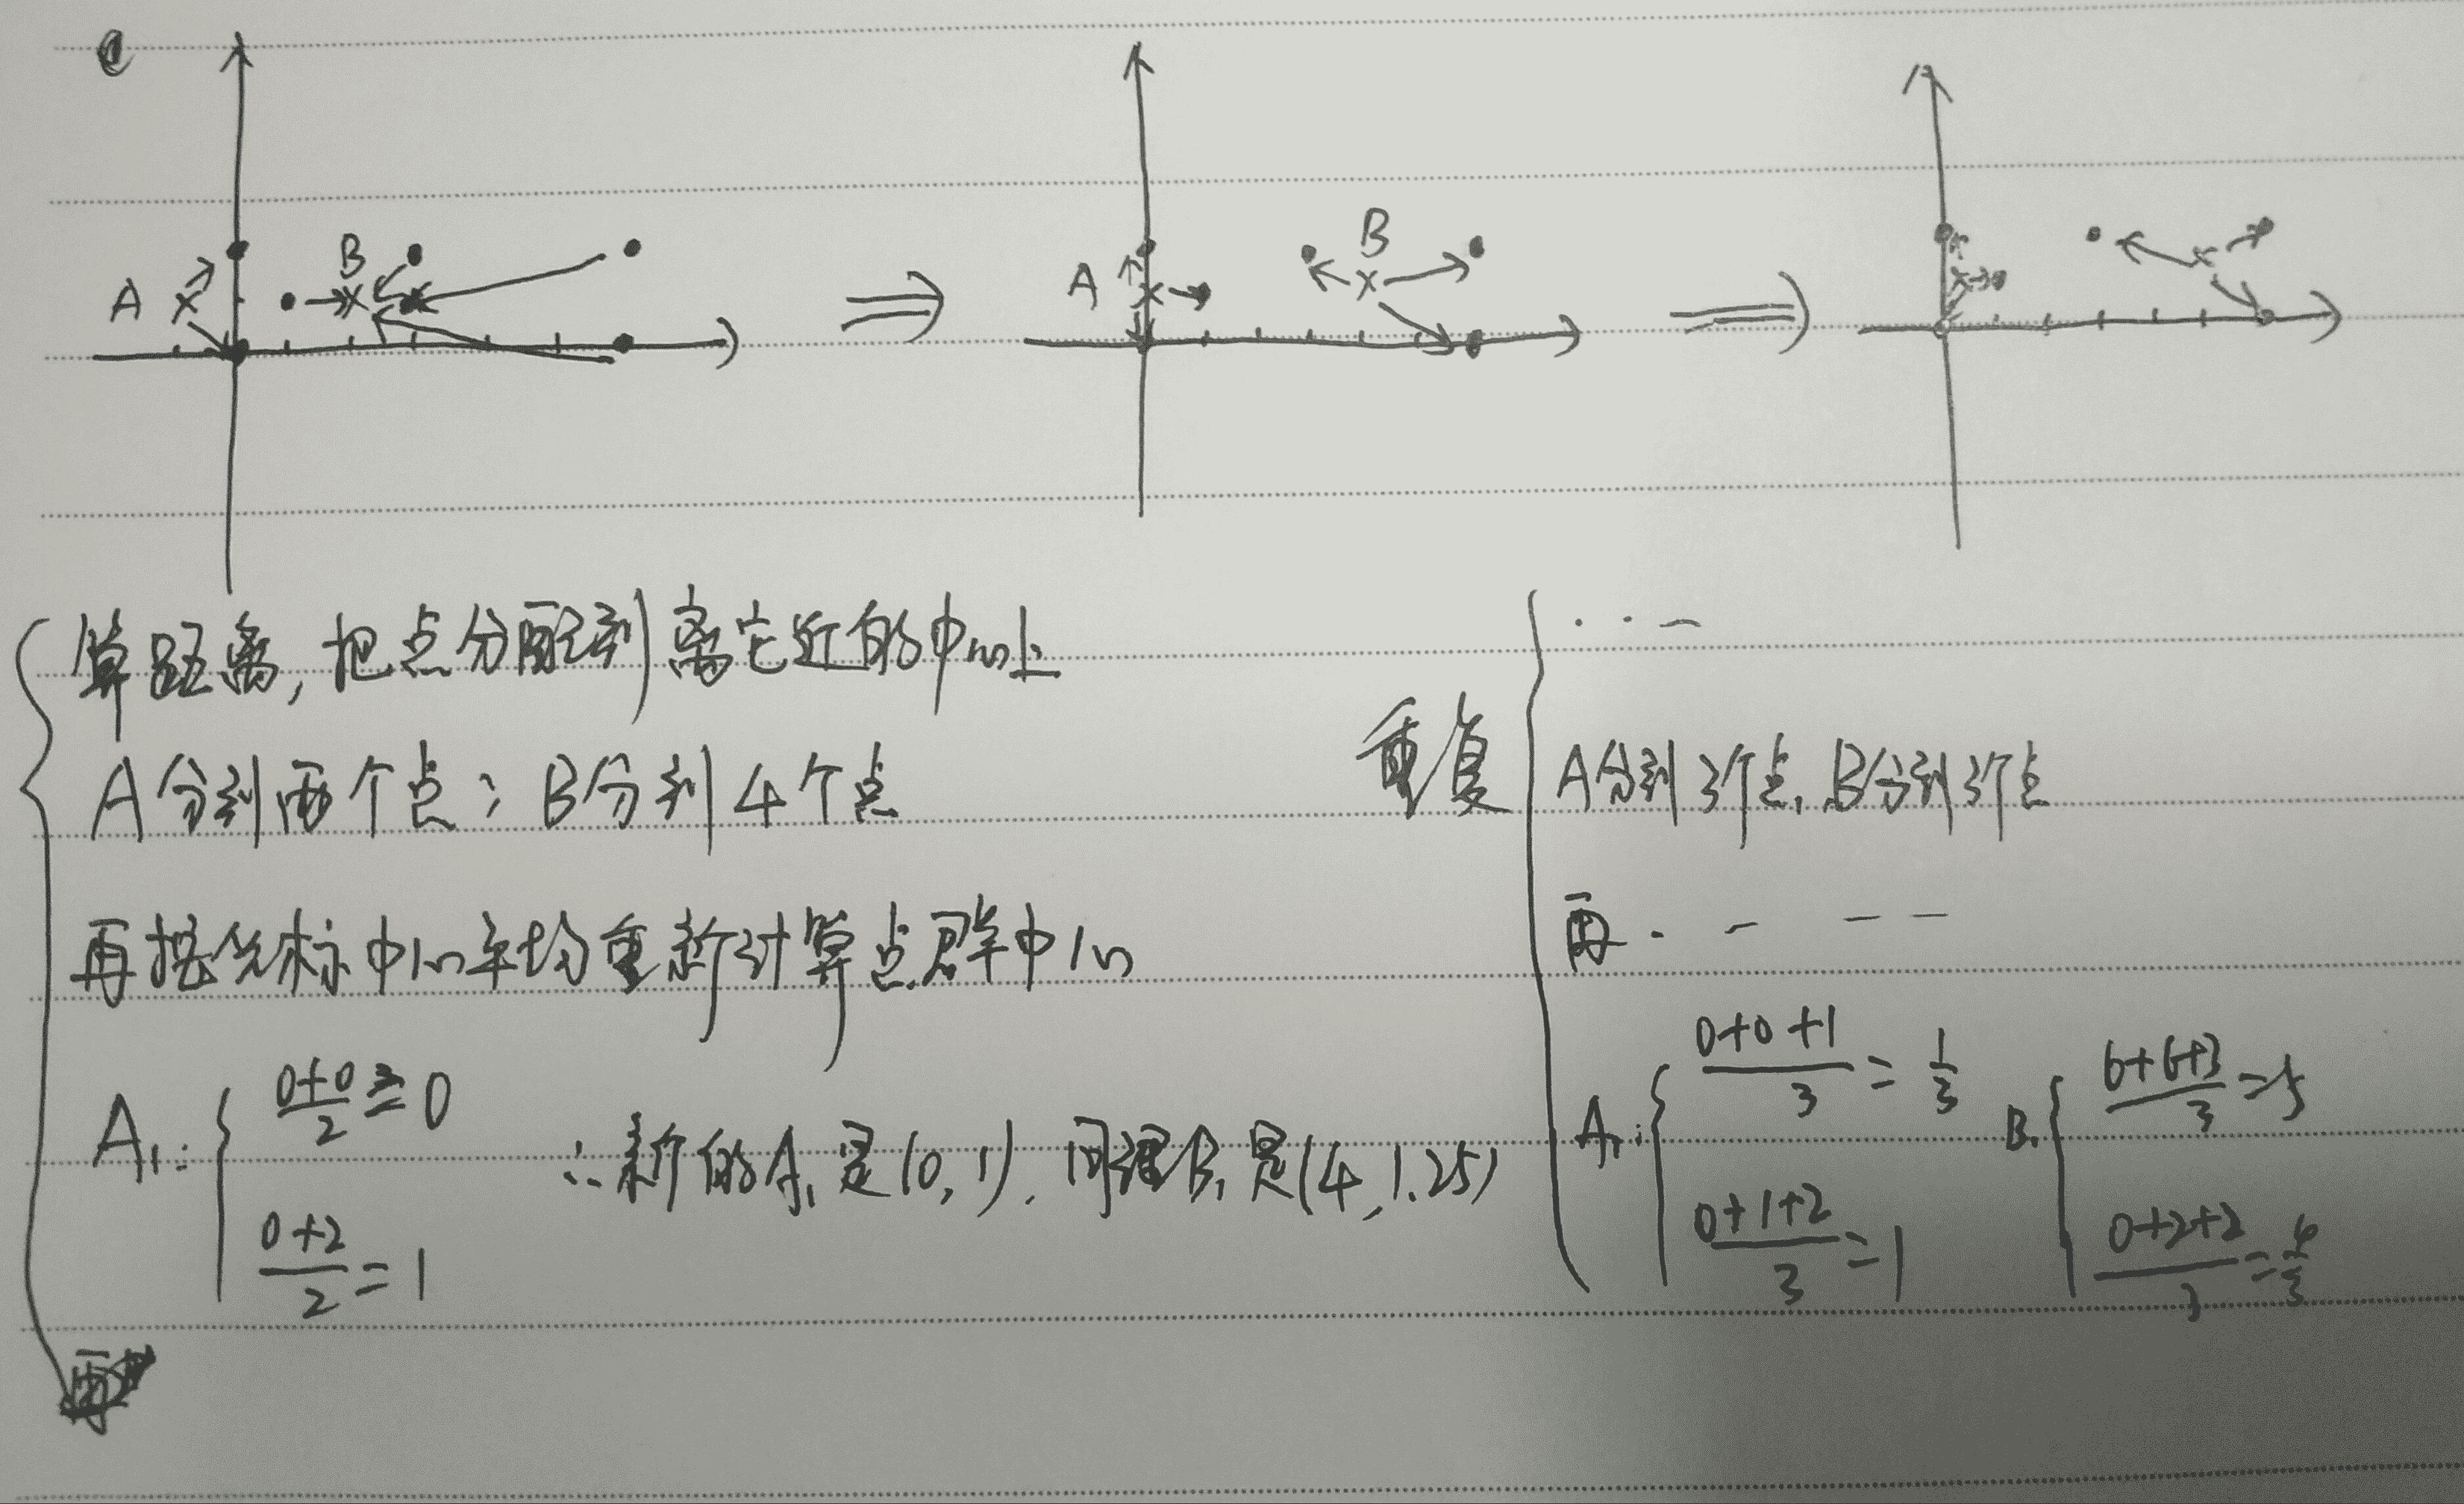 A B
A B
算距离,把点分配到离它近的中心上
A分到两个点; B分到4个点
再按坐标中心平均重新计算点群中心
A₁: { (0+0)/2 = 0
(0+2)/2 = 1
∴新的A₁是(0,1). 同理B₁是(4,1.25)
重复
A分到3个点, B分到3个点
再
A₁: { (0+0+1)/3 = 1/3
(0+1+2)/3 = 1
B₁ { (6+6+3)/3 = 5
(0+2+2)/3 = 4/3